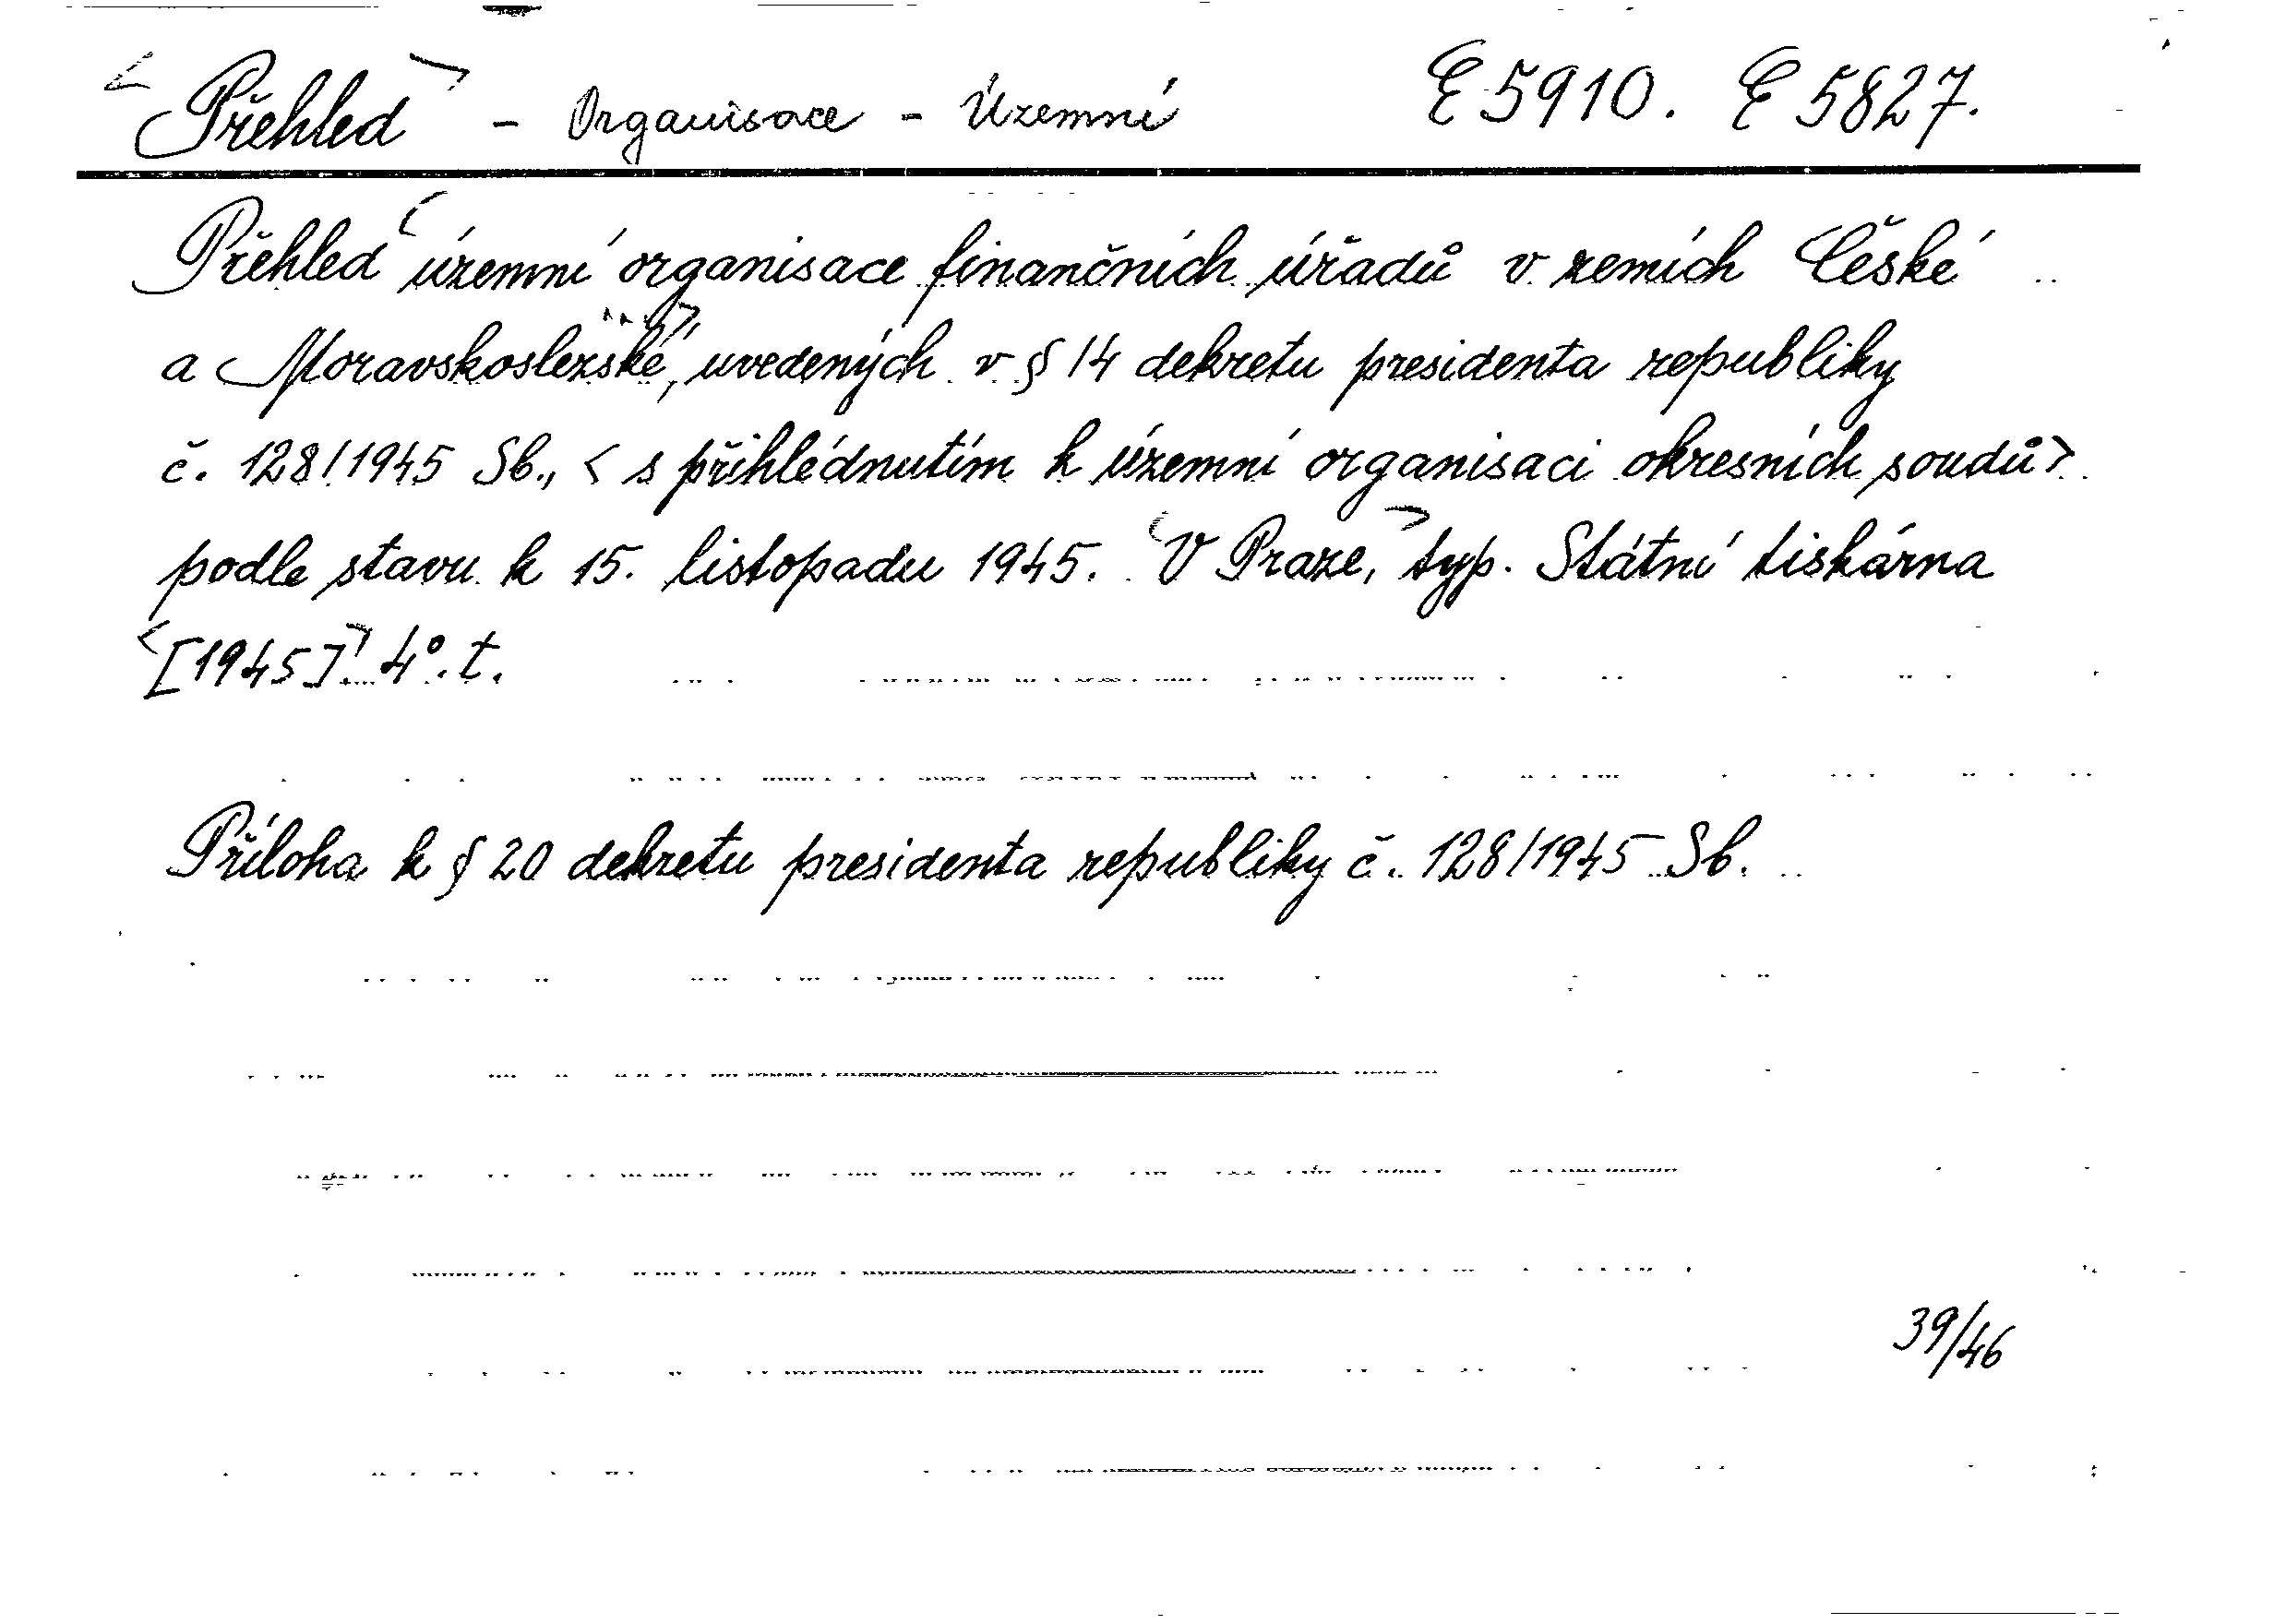 <Přehled> - Organisace - Územní E 5910. E 5827.
Přehled <územní organisace finančních úřadů v zemích České
a Moravskoslezské,> uvedených v § 14 dekretu presidenta republiky
č. 128/1945 Sb., < s přihlédnutím k územní organisaci okresních soudů>
podle stavu k 15. listopadu 1945. <V Praze,> typ. Státní tiskárna
<[1945]> 4°. t.
Příloha k § 20 dekretu presidenta republiky č. 128/1945 Sb.
39/46